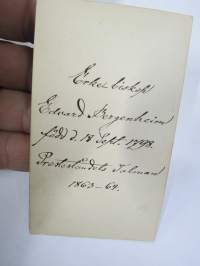 Erkei biskop
Edvard Bergenheim
född d. 18 Sept. 1798.
Presteståndets Talman
1863-64.